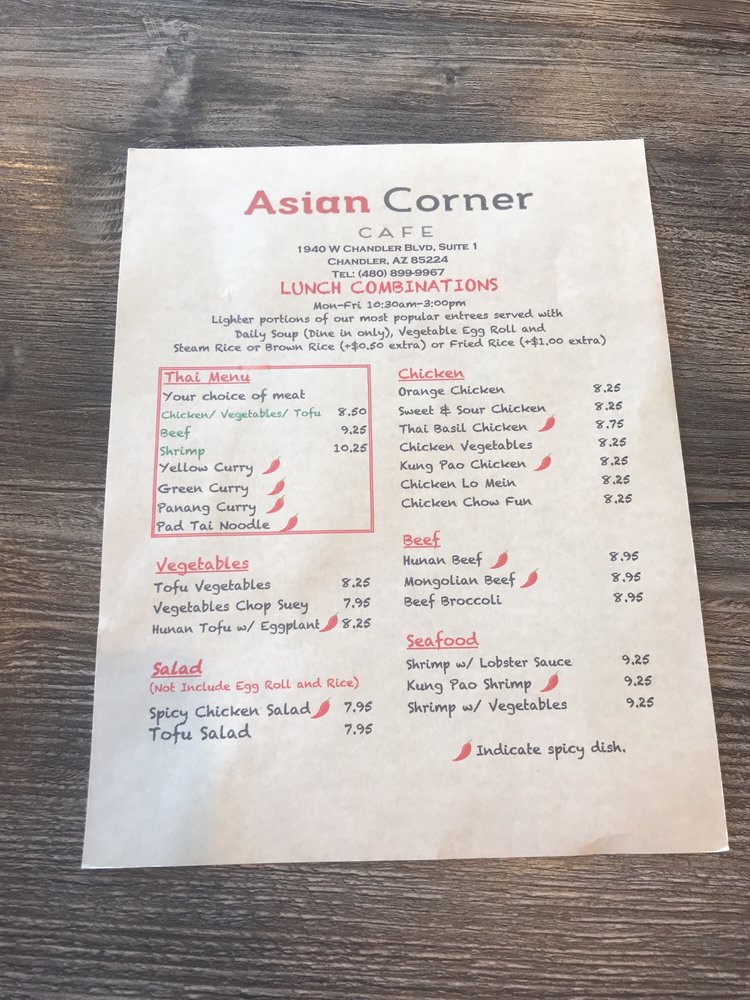 Asian Corner
CAFE
1940 W Chandler Blvd, Suite 1
Chandler, AZ 85224
Tel: (480) 899-9967
LUNCH COMBINATIONS
Mon-Fri 10:30am-3:00pm
Lighter portions of our most popular entrees served with
Daily Soup (Dine in only), Vegetable Egg Roll and
Steam Rice or Brown Rice (+$0.50 extra) or Fried Rice (+$1.00 extra)
Thai Menu
Your choice of meat
Chicken/ Vegetables/ Tofu 8.50
Beef 9.25
Shrimp 10.25
Yellow Curry
Green Curry
Panang Curry
Pad Tai Noodle
Vegetables
Tofu Vegetables 8.25
Vegetables Chop Suey 7.95
Hunan Tofu w/ Eggplant 8.25
Salad
(Not Include Egg Roll and Rice)
Spicy Chicken Salad 7.95
Tofu Salad 7.95
Chicken
Orange Chicken 8.25
Sweet & Sour Chicken 8.25
Thai Basil Chicken 8.75
Chicken Vegetables 8.25
Kung Pao Chicken 8.25
Chicken Lo Mein 8.25
Chicken Chow Fun 8.25
Beef
Hunan Beef 8.95
Mongolian Beef 8.95
Beef Broccoli 8.95
Seafood
Shrimp w/ Lobster Sauce 9.25
Kung Pao Shrimp 9.25
Shrimp w/ Vegetables 9.25
Indicate spicy dish.